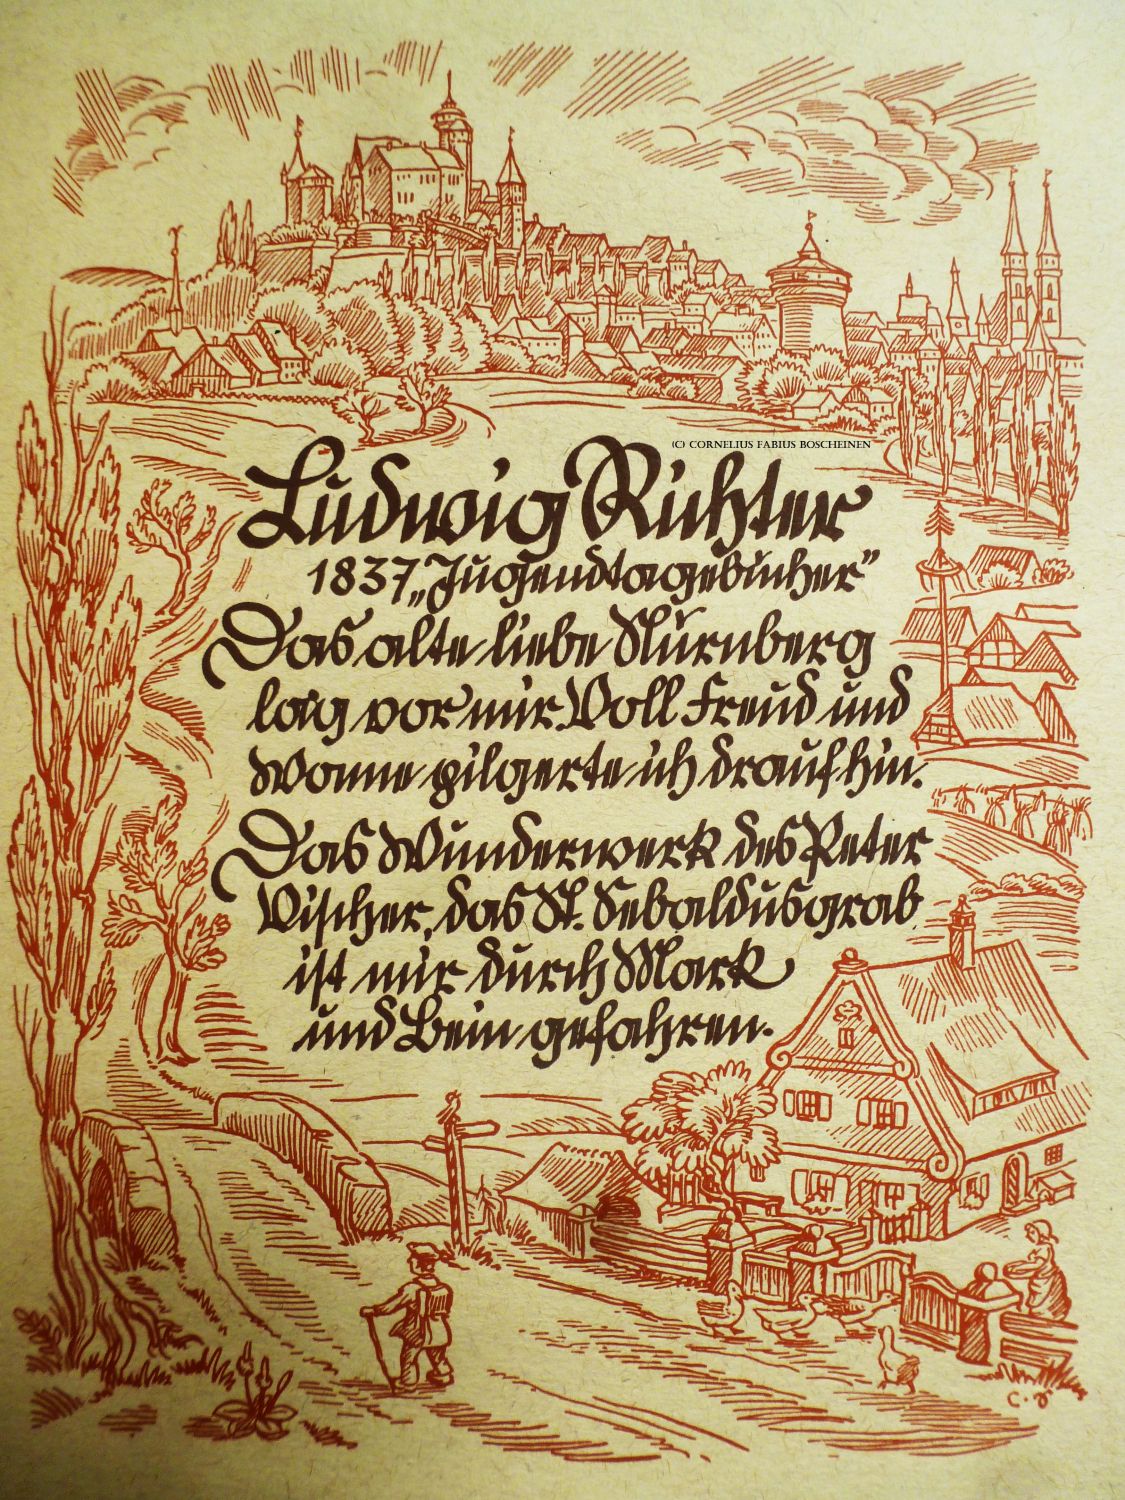 (C) CORNELIUS FABIUS BOSCHEINEN
Ludwig Richter
1837 „Jugendtagebücher"
Das alte liebe Nürnberg
lag vor mir. Voll Freud und
Wonne pilgerte ich drauf hin.
Das Wunderwerk des Peter
Vischer, das St. Sebaldusgrab
ist mir durch Mark
und Bein gefahren.